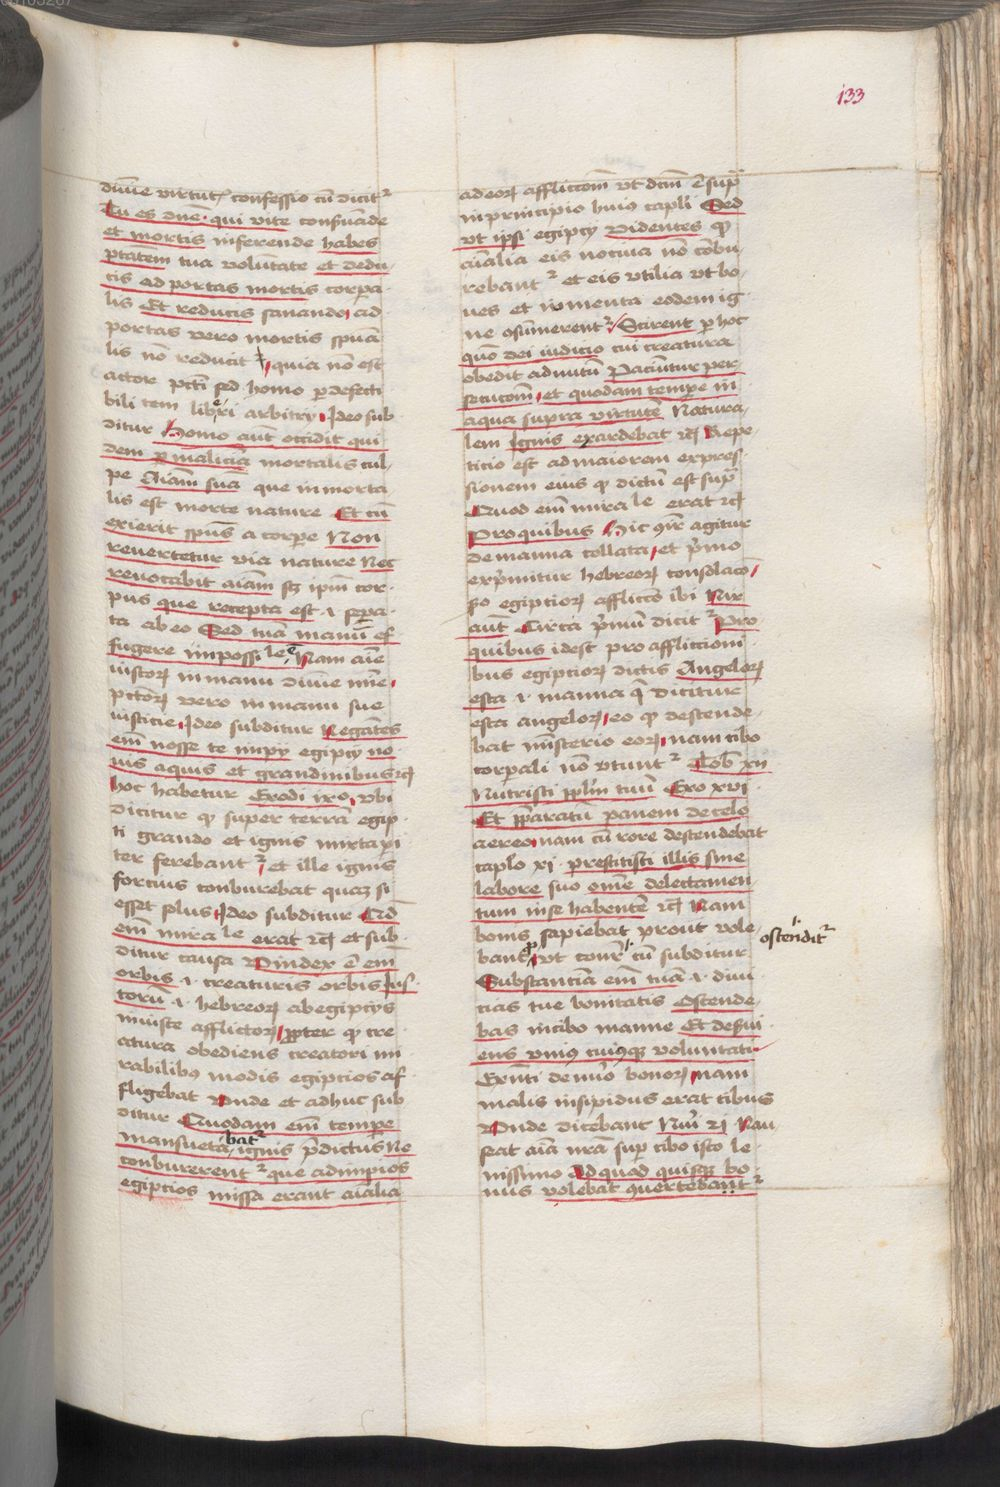 133
diuīe virtutꝭ confessio cū dicitᷣ
Tu es dn̄e qui vite conẜuāde
et mortis inferende habes
ptātem tua volūtate et dedu
cis ad portas mortis corpa
lis Et reducis sanando ad
portas vero mortis spūa
lis nō reducit quia nō est
actor pcc̄ti sed homo p defecti
bili tem libeꝛi arbitrij Ideo sub
ditur Homo aūt occidit qui
dem p maliciā mortalis cul
pe Aīam suā que inmorta
lis est morte nature Et cū
exierit spūs a corpe Non
reuertetur via nature Nec
reuocabit aīam sꝫ ipm̄ cor
pus que recepta est .i. sepa
ta ab eo Sed tuā manū ef
fugere impossi le ē Nam aīe
iustoꝝ in manu diuīe mīe
pctōꝝ vero in manu sue
iusticie Ideo subditur Negātes
em̄ nosse te impij egipcij no
uis aquis et grandinibus ⁊cꝫ
hoc habetur Exodi ixo vbi
dicitur ꝙ super terrā egip
ti grando et ignis mixta pi
ter ferebantᷣ et ille ignis
forcius conburebat quaꝫ si
esset solus Ideo subditur Qd̄
em̄ mira le erat ⁊cꝫ et sub
ditur causa Vindex ē em̄
orbis .i. creaturis orbis Ius
torū .i. hebreoꝝ ab egipcijs
iniuste afflictoꝝ ꝓpter ꝙ cre
atura obediens creatori mi
rabilibꝰ modis egiptios af
fligebat Vnde et adhuc sub
ditur Quodam em̄ tempe
mansueta batᷣ ignis p̄dictus Ne
conburerentᷣ que ad impios
egiptios missa erant aīalia
ad eoꝝ afflictiōm vt dcm̄ ē supᷣ
in principio huiꝰ capli Sed
vt ipsi egipcij videntes ꝙ
aīalia eis nociua nō cōbu
rebantᷣ et eis vtilia vt bo
ues et iumenta eodem ig
ne ↄsumerentᷣ Scirent p hoc
quō dei iudicio cui creatura
obedit ad nutū Paciūtur per
secucōm et quodam tempe in
aqua supra virtutē Natura
lem Ignis exardebat ⁊cꝫ Repe
ticio est ad maiorem expres
sionem eius ꝙ dictū est supᷣ
Quod em̄ mira le erat ⁊cꝫ
Pro quibus Hic ↄn̄r agitur
de manna collata et p̄mo
exp̄mitur hebreoꝝ consolaco
so egiptioꝝ afflictō ibi Nix
aūt Circa p̄mū dicitᷣ Pro
quibus idest pro afflictioni
bus egiptioꝝ dictis Angeloꝝ
esca .i. manna q̄ dicitur
esca angeloꝝ eo ꝙ descende
bat mīsterio eoꝝ nam cibo
corpali nō vtuntᷣ Ioh̄ xij
Nutristi pplm̄ tuū Exo xvi
Et pparatū panem de celo
aereo nam cū rore descendebat
caplo xi prestitisti illis sine
labore suo om̄e delectamen
tum in se habentē ⁊cꝫ Nam
bonis sapiebat prout vole
bant ꝓ vt conr̄ cū subditur
ostenditᷣ
Substanciā em̄ tuā .i. diui
cias tue bonitatis Ostende
bas in cibo manne Et deẜui
ens vniꝰ cuiꝰqꝫ voluntati
Exn̄ti de nūo bonoꝝ nam
malis insipidus erat cibus
Vnde dicebant Nūi xi Nau
seat aīa nrā sup cibo isto le
uissimo Ad quod quisqꝫ bo
nus volebat ↄuertebantᷣ